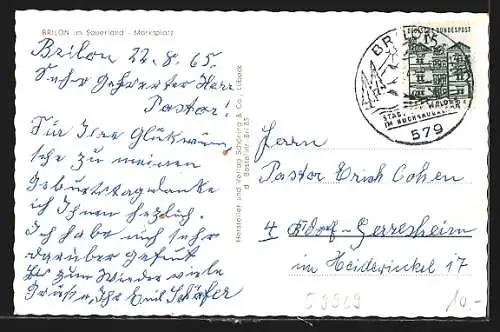 BRILON im Sauerland - Marktplatz
Brilon 22.8.65.
Sehr Geherrter Herr
Pastor!
Für Ihre Glückwün
sche zu meinen
Geburtstag danke
ich Ihnen herzlich.
Ich habe mich sehr
darüber gefreut
zum Wieder viele
Grüße, Ihr Emil Schäfer
Hersteller und Verlag Schöning & Co., Lübeck
Bestellnr. Bri 85
DEUTSCHE BUNDESPOST
BRILON
STADT WALDES
IM HOCHSAUERLAND
579
Herrn
Pastor Erich Cohen
4 Ddorf-Gerresheim
im Heidewinkel 17
59929
10.-